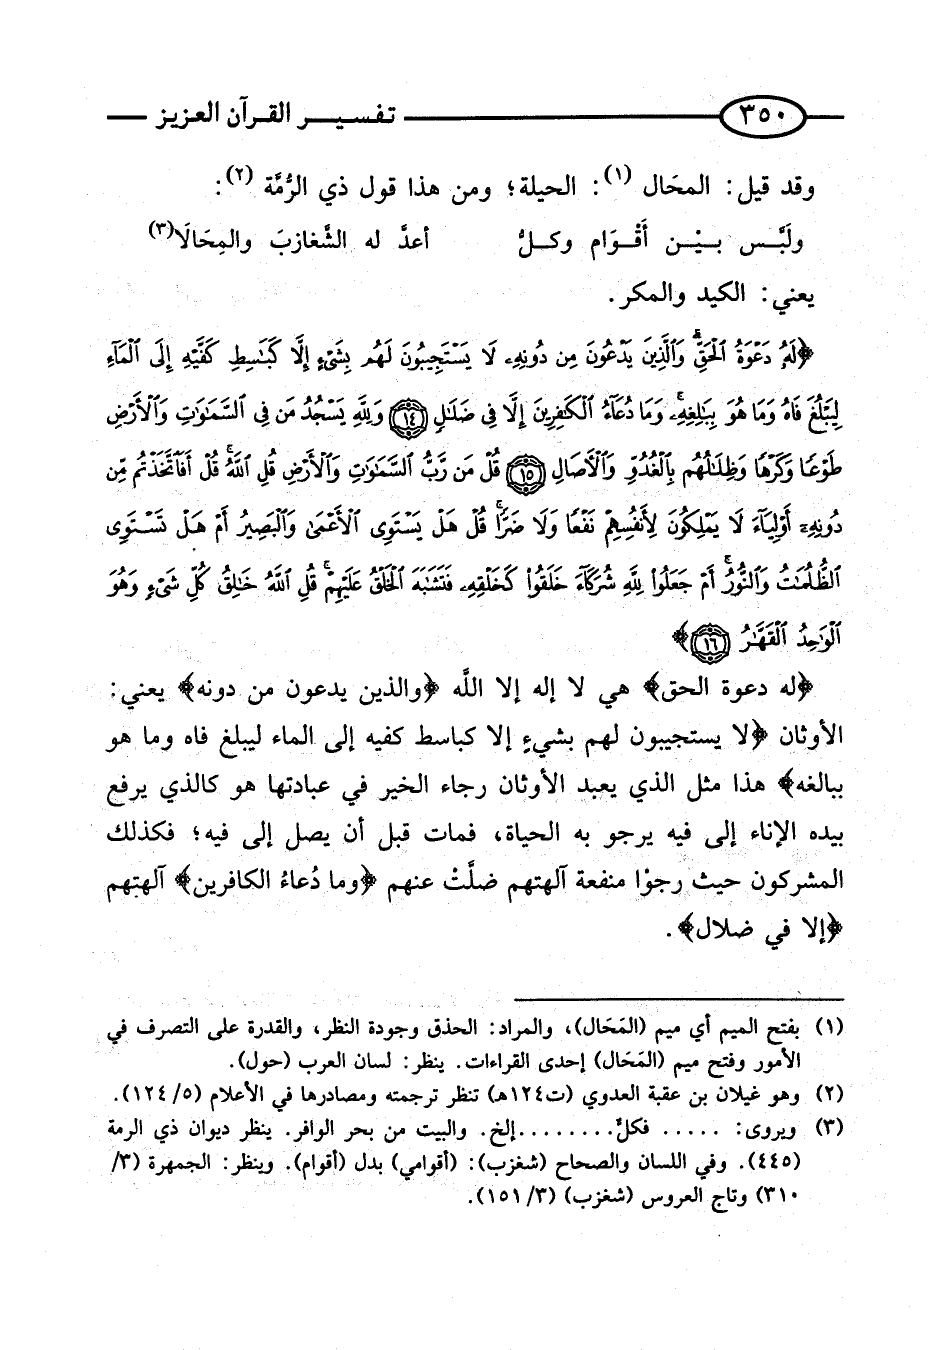 ٣٥٠ تفسير القرآن العزيز
وقد قيل: المحَال (١): الحيلة؛ ومن هذا قول ذي الرُّمَّة (٢):
ولَبَّس بيْن أَقْوَام وكلُّ أعدَّ له الشَّغازبَ والمِحَالَا(٣)
يعني: الكيد والمكر.
﴿لَهُۥ دَعْوَةُ ٱلْحَقِّ ۖ وَٱلَّذِينَ يَدْعُونَ مِن دُونِهِۦ لَا يَسْتَجِيبُونَ لَهُم بِشَىْءٍ إِلَّا كَبَٰسِطِ كَفَّيْهِ إِلَى ٱلْمَآءِ
لِيَبْلُغَ فَاهُ وَمَا هُوَ بِبَٰلِغِهِۦ ۚ وَمَا دُعَآءُ ٱلْكَٰفِرِينَ إِلَّا فِى ضَلَٰلٍ ۝١٤ وَلِلَّهِ يَسْجُدُ مَن فِى ٱلسَّمَٰوَٰتِ وَٱلْأَرْضِ
طَوْعًا وَكَرْهًا وَظِلَٰلُهُم بِٱلْغُدُوِّ وَٱلْأَصَالِ ۝١٥ قُلْ مَن رَّبُّ ٱلسَّمَٰوَٰتِ وَٱلْأَرْضِ قُلِ ٱللَّهُ ۚ قُلْ أَفَٱتَّخَذْتُم مِّن
دُونِهِۦٓ أَوْلِيَآءَ لَا يَمْلِكُونَ لِأَنفُسِهِمْ نَفْعًا وَلَا ضَرًّا ۚ قُلْ هَلْ يَسْتَوِى ٱلْأَعْمَىٰ وَٱلْبَصِيرُ أَمْ هَلْ تَسْتَوِى
ٱلظُّلُمَٰتُ وَٱلنُّورُ ۗ أَمْ جَعَلُوا۟ لِلَّهِ شُرَكَآءَ خَلَقُوا۟ كَخَلْقِهِۦ فَتَشَٰبَهَ ٱلْخَلْقُ عَلَيْهِمْ ۚ قُلِ ٱللَّهُ خَٰلِقُ كُلِّ شَىْءٍ وَهُوَ
ٱلْوَٰحِدُ ٱلْقَهَّٰرُ ۝١٦﴾
﴿له دعوة الحق﴾ هي لا إله إلا اللَّه ﴿والذين يدعون من دونه﴾ يعني:
الأوثان ﴿لا يستجيبون لهم بشيءٍ إلا كباسط كفيه إلى الماء ليبلغ فاه وما هو
ببالغه﴾ هذا مثل الذي يعبد الأوثان رجاء الخير في عبادتها هو كالذي يرفع
بيده الإناء إلى فيه يرجو به الحياة، فمات قبل أن يصل إلى فيه؛ فكذلك
المشركون حيث رجوْا منفعة آلهتهم ضلَّتْ عنهم ﴿وما دُعاءُ الكافرين﴾ آلهتهم
﴿إلا في ضلال﴾.
(١) بفتح الميم أي ميم (المَحَال)، والمراد: الحذق وجودة النظر، والقدرة على التصرف في
الأمور وفتح ميم (المَحَال) إحدى القراءات. ينظر: لسان العرب (حول).
(٢) وهو غيلان بن عقبة العدوي (ت١٢٤هـ) تنظر ترجمته ومصادرها في الأعلام (٥/ ١٢٤).
(٣) ويروى: ..... فكلٌ........إلخ. والبيت من بحر الوافر. ينظر ديوان ذي الرمة
(٤٤٥). وفي اللسان والصحاح (شغزب): (أقوامي) بدل (أقوام). وينظر: الجمهرة (٣/
٣١٠) وتاج العروس (شغزب) (٣/ ١٥١).